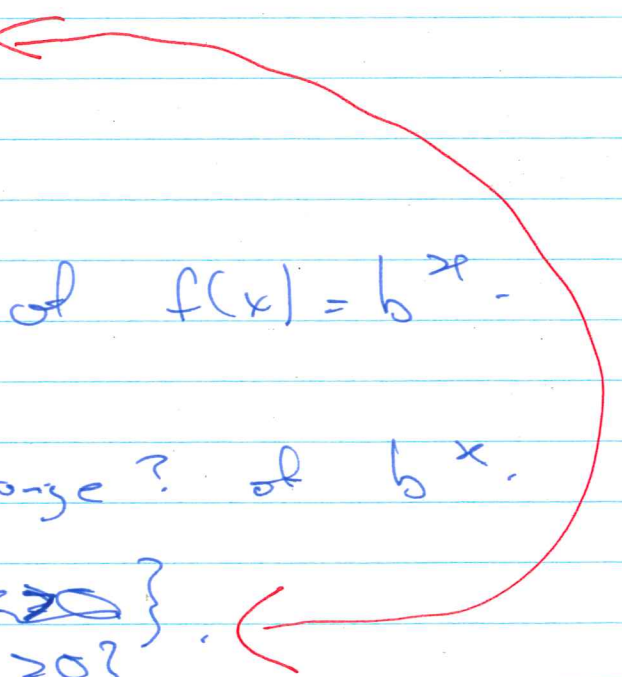 of f(x) = b^x.
onge? of b^x.
}.
>0?